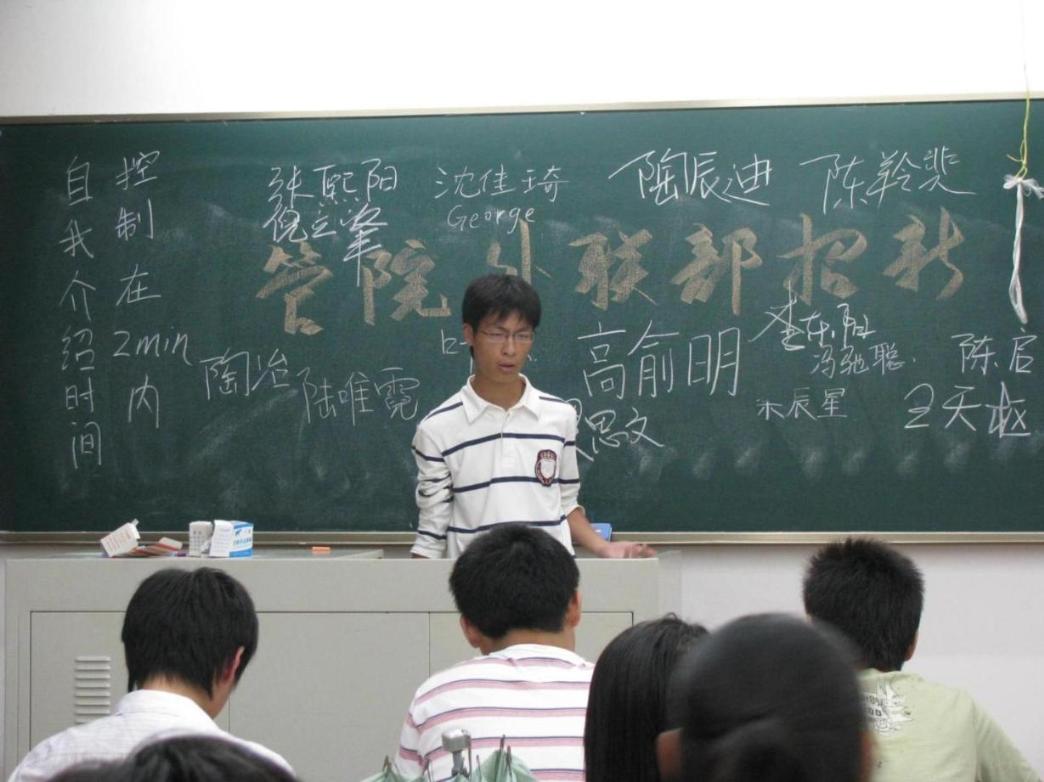 自我介绍时间
控制在2min内
张熙阳
沈佳琦
陶辰迪
陈羚裴
George
管院外联部招新
高俞明
陶冶
陆唯霓
冯驰聪
陈启
思文
朱辰星
王天枢